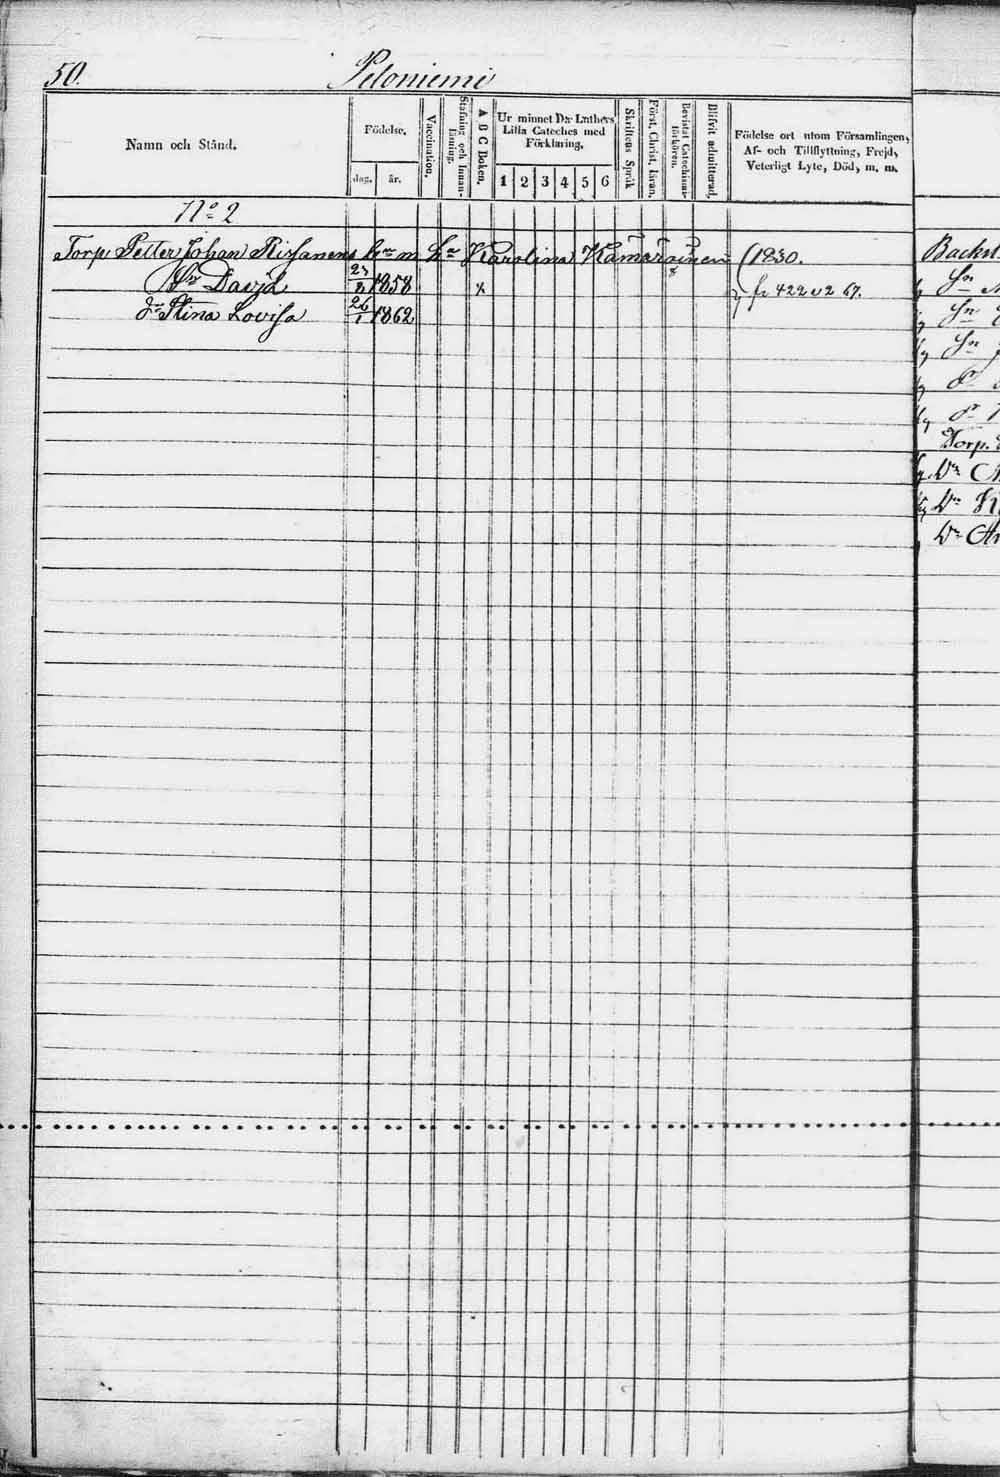 50. Peloniemi
Namn och Stånd.
Födelse.
dag.
år.
Vaccination.
Stafning och Innan-läsning.
A B C Boken.
Ur minnet D:r Luthers
Lilla Cateches med
Förklaring.
1 2 3 4 5 6
Skriftens Språk
Först. Christ. läran.
Bevistat Catechismi-förhören.
Blifvit admitterad.
Födelse ort utom Församlingen,
Af- och Tillflyttning, Frejd,
Veterligt Lyte, Död, m. m.
No 2
Torp. Petter Johan h:r m h:a Karolina Kamarainen (1830.
Sn David 1858 x fr 422 67.
dr Stina Lovisa 26/1 1862
Sn
Sn
Sn
dr
dr
Torp.
Dr
Dr
Dr